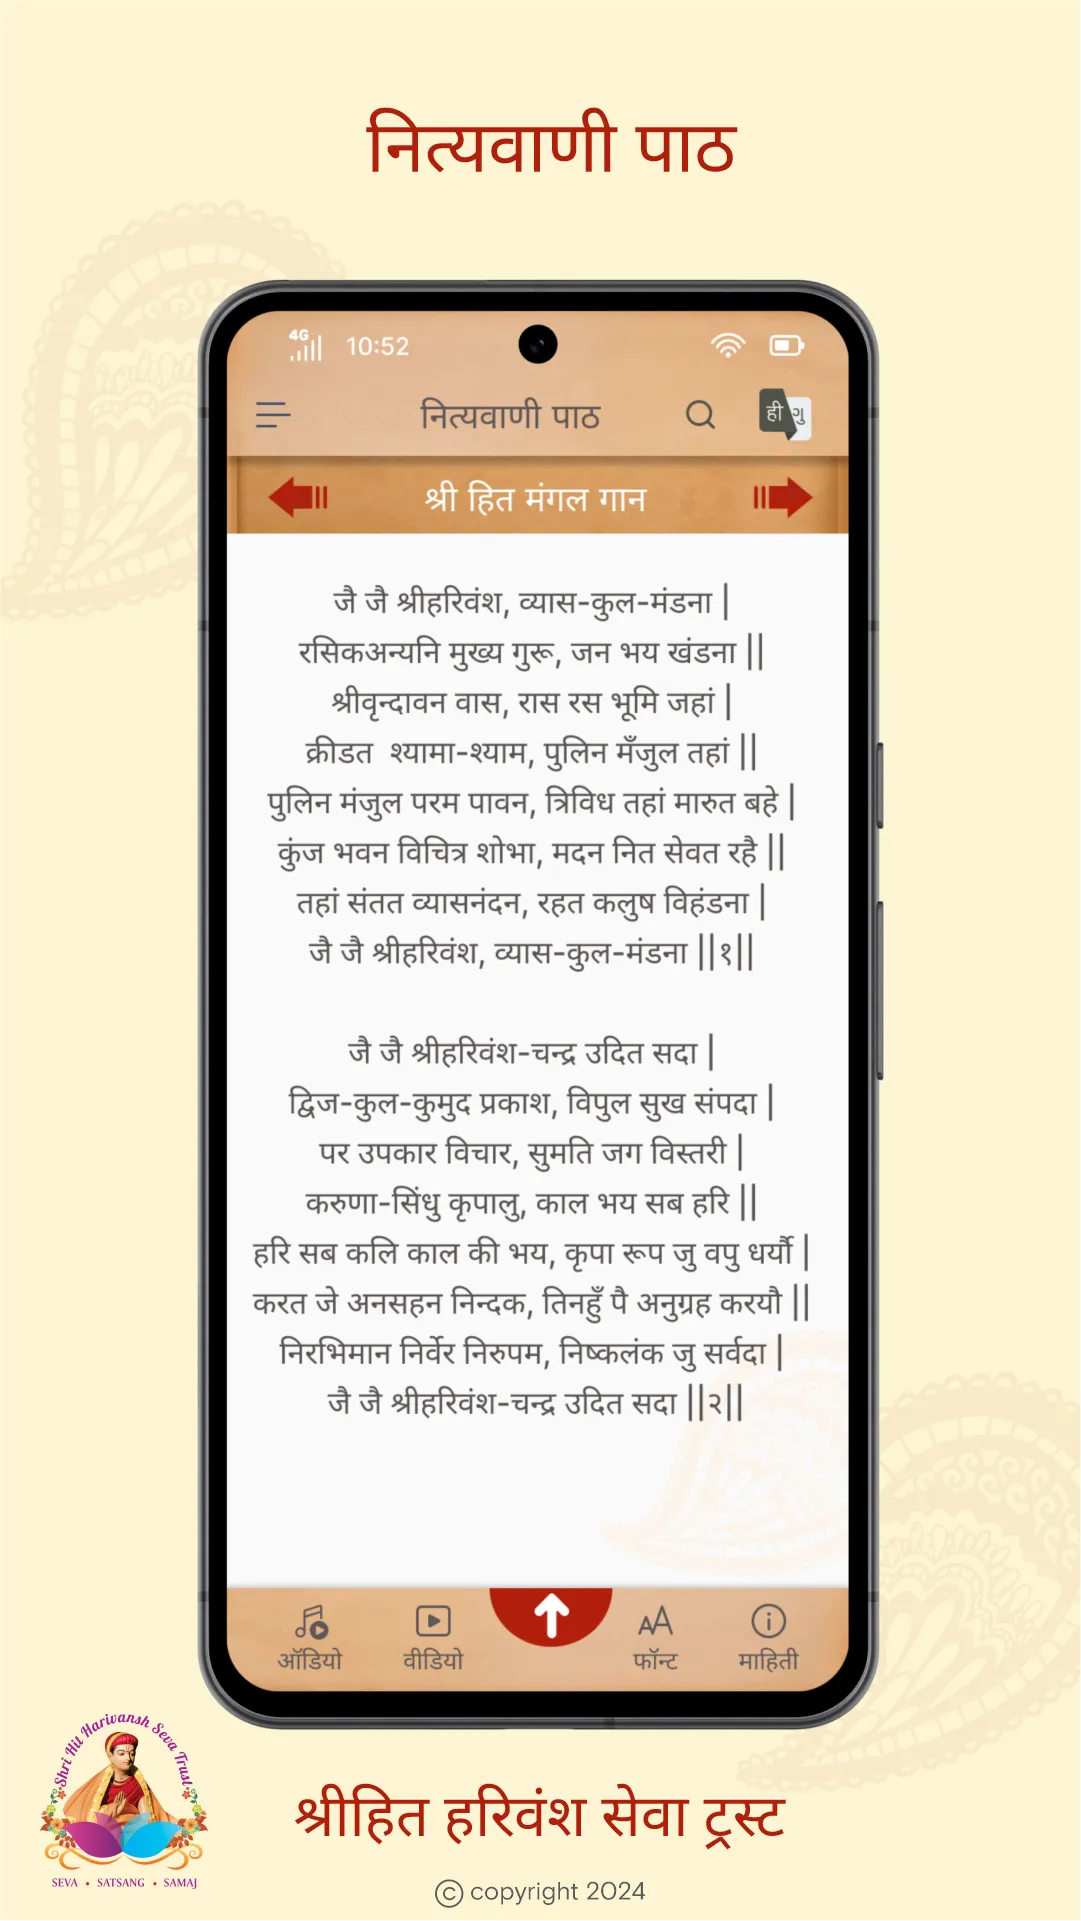 नित्यवाणी पाठ
4G 10:52
नित्यवाणी पाठ ही गु
श्री हित मंगल गान
जै जै श्रीहरिवंश, व्यास-कुल-मंडना |
रसिकअन्यनि मुख्य गुरू, जन भय खंडना ||
श्रीवृन्दावन वास, रास रस भूमि जहां |
क्रीडत श्यामा-श्याम, पुलिन मँजुल तहां ||
पुलिन मंजुल परम पावन, त्रिविध तहां मारुत बहे |
कुंज भवन विचित्र शोभा, मदन नित सेवत रहै ||
तहां संतत व्यासनंदन, रहत कलुष विहंडना |
जै जै श्रीहरिवंश, व्यास-कुल-मंडना ||१||
जै जै श्रीहरिवंश-चन्द्र उदित सदा |
द्विज-कुल-कुमुद प्रकाश, विपुल सुख संपदा |
पर उपकार विचार, सुमति जग विस्तरी |
करुणा-सिंधु कृपालु, काल भय सब हरि ||
हरि सब कलि काल की भय, कृपा रूप जु वपु धर्यौ |
करत जे अनसहन निन्दक, तिनहुँ पै अनुग्रह करयौ ||
निरभिमान निर्वेर निरुपम, निष्कलंक जु सर्वदा |
जै जै श्रीहरिवंश-चन्द्र उदित सदा ||२||
ऑडियो वीडियो फॉन्ट माहिती
Shri Hit Harivansh Seva Trust
SEVA • SATSANG • SAMAJ
श्रीहित हरिवंश सेवा ट्रस्ट
© copyright 2024